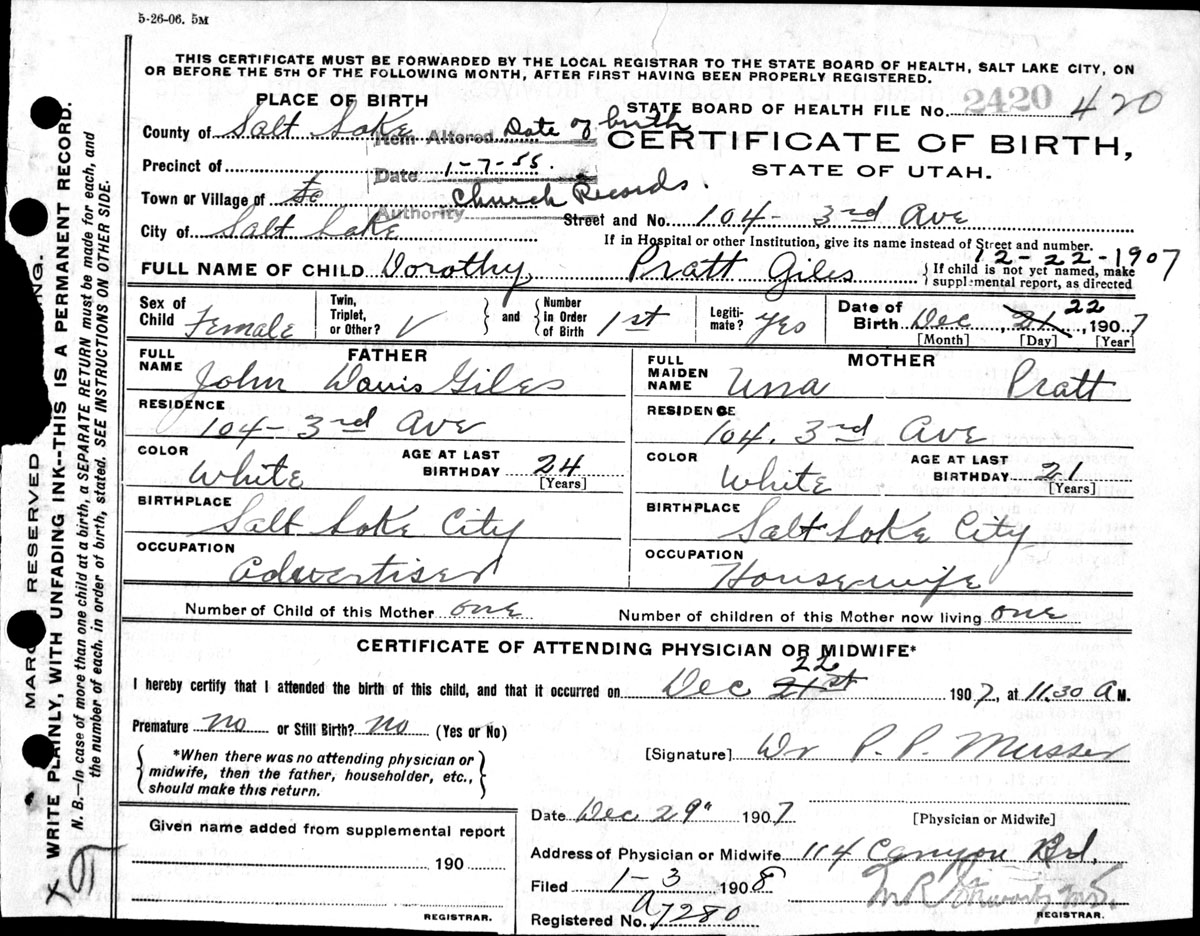 5-26-06. 5M
THIS CERTIFICATE MUST BE FORWARDED BY THE LOCAL REGISTRAR TO THE STATE BOARD OF HEALTH, SALT LAKE CITY, ON
OR BEFORE THE 5TH OF THE FOLLOWING MONTH, AFTER FIRST HAVING BEEN PROPERLY REGISTERED.
PLACE OF BIRTH
STATE BOARD OF HEALTH FILE No. 2420 420
County of Salt Lake
Item Altered Date of birth
CERTIFICATE OF BIRTH,
Precinct of
Date 1-7-55.
STATE OF UTAH.
Town or Village of
Authority Church Records.
Street and No. 104- 3rd Ave
City of Salt Lake
If in Hospital or other Institution, give its name instead of Street and number.
12-22-1907
FULL NAME OF CHILD Dorothy Pratt Giles
If child is not yet named, make
supplemental report, as directed
Sex of Child Female
Twin, Triplet, or Other? V
and
Number in Order of Birth 1st
Legiti-mate? Yes
Date of Birth Dec, 21 22, 1907
[Month] [Day] [Year]
FATHER
FULL NAME John Davis Giles
MOTHER
FULL MAIDEN NAME Una Pratt
RESIDENCE 104- 3rd Ave
RESIDENCE 104. 3rd Ave
COLOR White
AGE AT LAST BIRTHDAY 24
[Years]
COLOR White
AGE AT LAST BIRTHDAY 21
[Years]
BIRTHPLACE Salt Lake City
BIRTHPLACE Salt Lake City
OCCUPATION Advertiser
OCCUPATION Housewife
Number of Child of this Mother one
Number of children of this Mother now living one
CERTIFICATE OF ATTENDING PHYSICIAN OR MIDWIFE*
22
I hereby certify that I attended the birth of this child, and that it occurred on Dec 21st 1907, at 11.30 A M.
Premature no or Still Birth? no (Yes or No)
*When there was no attending physician or
midwife, then the father, householder, etc.,
should make this return.
[Signature] Dr P. P. Musser
Date Dec 29" 1907
[Physician or Midwife]
Given name added from supplemental report
190
REGISTRAR.
Address of Physician or Midwife 114 Canyon Rd.
Filed 1-3 1908
Registered No. A7280
REGISTRAR.
MARGIN RESERVED
WRITE PLAINLY, WITH UNFADING INK--THIS IS A PERMANENT RECORD.
N. B.—In case of more than one child at a birth, a SEPARATE RETURN must be made for each, and
the number of each, in order of birth, stated. SEE INSTRUCTIONS ON OTHER SIDE.